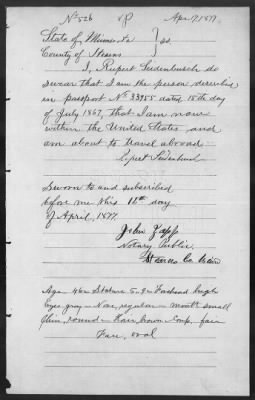 No 526 Apr 17, 1877.
State of Minnesota } ss.
County of Stearns
I, Rupert Seidenbusch do
swear that I am the person described
in passport No 33955 dated 15th day
of July 1867, that I am now
within the United States and
am about to travel abroad
Rupert Seidenbusch
Sworn to and subscribed
before me this 11th day
of April, 1877.
John Zapp
Notary Public
Stearns Co. Minn
Age 46 Stature 5.9 Forehead high
Eyes gray – Nose, regular – mouth small
Chin, round – Hair, brown Comp. fair
Face, oval